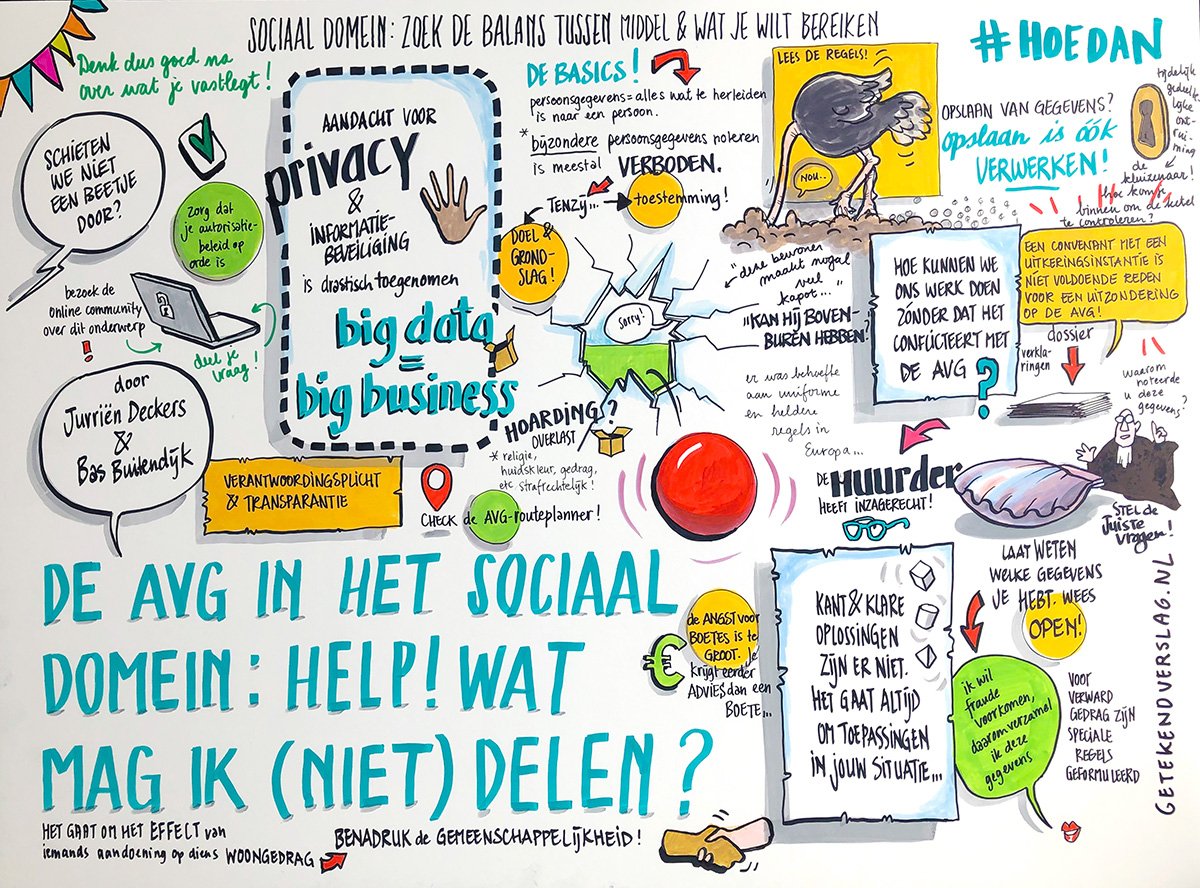 SOCIAAL DOMEIN: ZOEK DE BALANS TUSSEN MIDDEL & WAT JE WILT BEREIKEN
#HOEDAN
Denk dus goed na
over wat je vastlegt!
SCHIETEN
WE NIET
EEN BEETJE
DOOR?
zorg dat
je autorisatie-
beleid op
orde is
bezoek de
Online community
over dit onderwerp
!
deel je
vraag!
door
Jurriën Deckers
&
Bas Buitendijk
AANDACHT VOOR
privacy
&
INFORMATIE-
BEVEILIGING
is drastisch toegenomen
big data
=
big business
DE BASICS!
persoonsgegevens = alles wat te herleiden
is naar een persoon.
* bijzondere persoonsgegevens noteren
is meestal VERBODEN.
TENZIJ... toestemming!
DOEL &
GROND-
SLAG!
Sorry!
HOARDING?
OVERLAST
* religie,
huidskleur, gedrag,
etc. strafrechtelijk!
VERANTWOORDINGSPLICHT
& TRANSPARANTIE
CHECK de AVG-routeplanner!
LEES DE REGELS!
NOU..
OPSLAAN VAN GEGEVENS?
opslaan is óók
VERWERKEN!
tijdelijk
gedeelte-
lijke
ont-
rui-
ming
de
kluizenaar!
hoe kom je
binnen om de ketel
te controleren?
"deze bewoner
maakt nogal
veel
kapot..."
"KAN HIJ BOVEN-
BUREN HEBBEN?
er was behoefte
aan uniforme
en heldere
regels in
Europa...
HOE KUNNEN WE
ONS WERK DOEN
ZONDER DAT HET
CONFLICTEERT MET
DE AVG?
EEN CONVENANT MET EEN
UITKERINGSINSTANTIE IS
NIET VOLDOENDE REDEN
VOOR EEN UITZONDERING
OP DE AVG!
dossier
verkla-
ringen
waarom
noteerde
u deze
gegevens?
STEL de
Juiste
vragen!
DE HUURDER
HEEFT INZAGERECHT!
LAAT WETEN
WELKE GEGEVENS
JE HEBT. WEES
OPEN!
KANT & KLARE
OPLOSSINGEN
ZIJN ER NIET.
HET GAAT ALTIJD
OM TOEPASSINGEN
IN JOUW SITUATIE...
ik wil
fraude
voorkomen,
daarom verzamel
ik deze
gegevens
VOOR
VERWARD
GEDRAG ZIJN
SPECIALE
REGELS
GEFORMULEERD
€
de ANGST voor
BOETES is te
GROOT. Je
krijgt eerder
ADVIES dan een
BOETE...
DE AVG IN HET SOCIAAL
DOMEIN: HELP! WAT
MAG IK (NIET) DELEN?
HET GAAT OM HET EFFELT van
iemands aandoening op diens WOONGEDRAG
BENADRUK de GEMEENSCHAPPELIJKHEID!
GETEKENDVERSLAG.NL